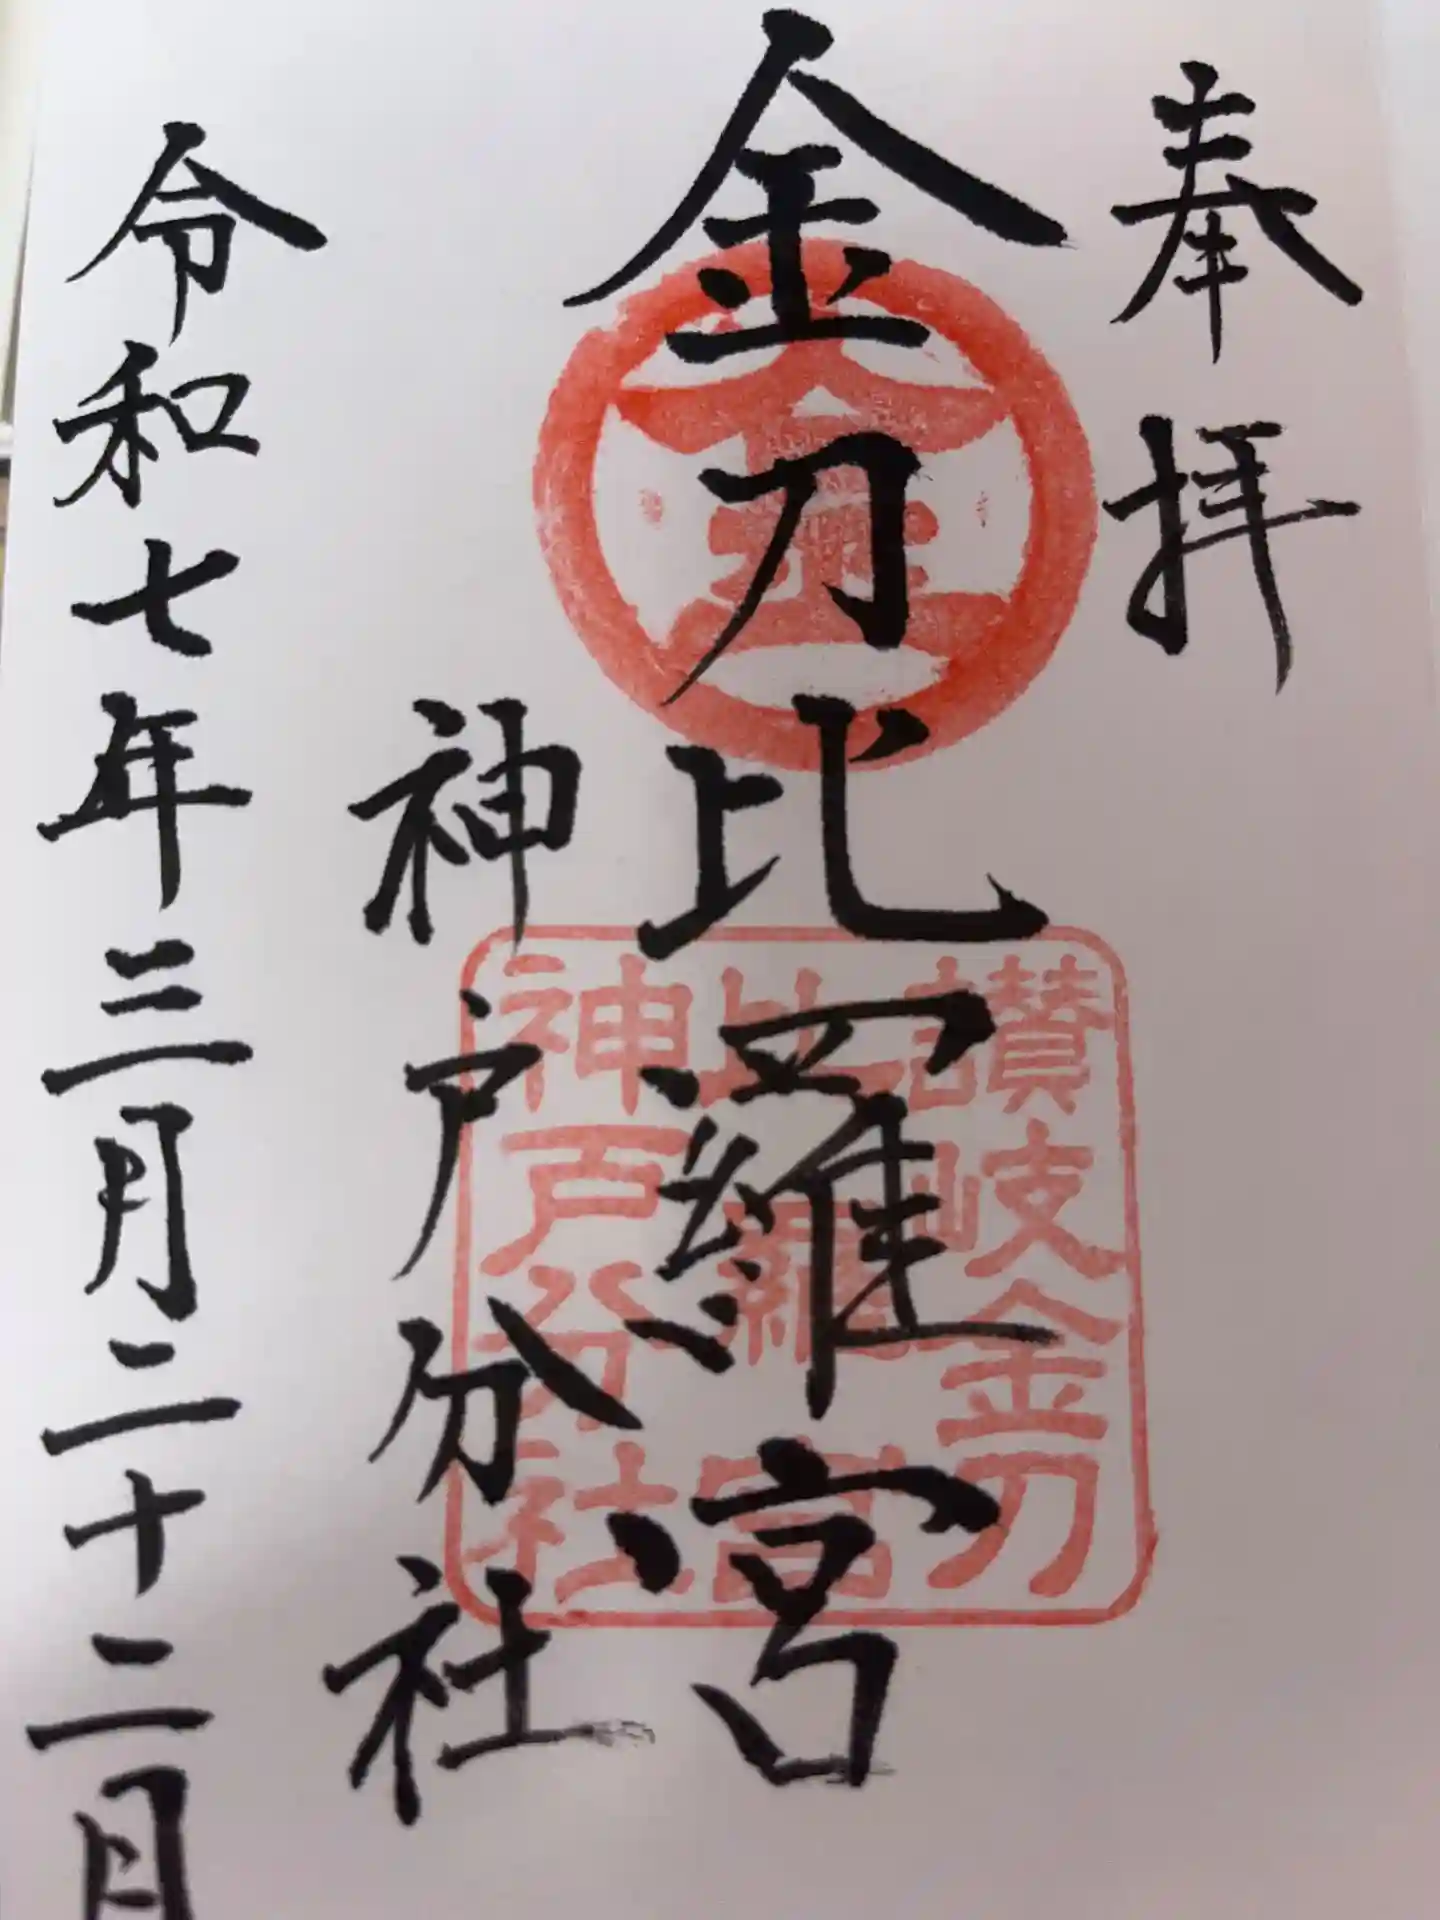 奉拝
金刀比羅宮
神戸分社
令和七年三月二十二日
金
讃岐金刀
比羅宮
神戸分社